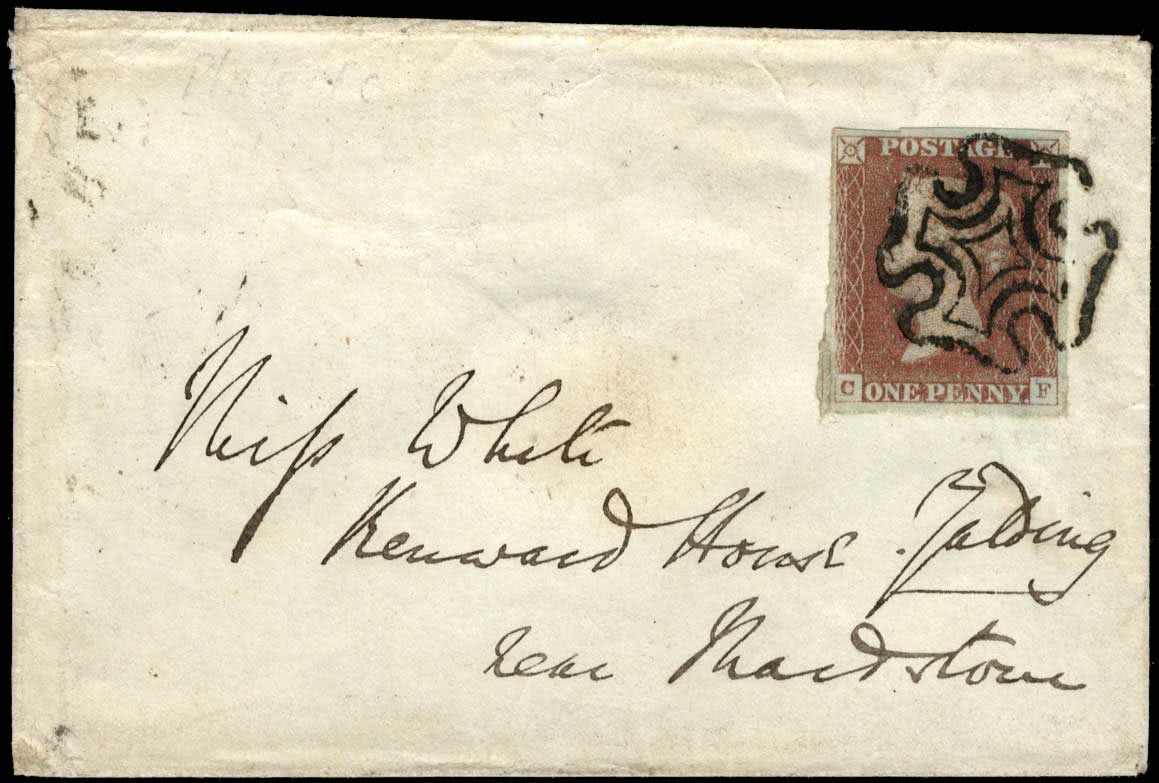 POSTAGE
C ONE PENNY F
Miss White
Kenward House Yalding
near Maidstone